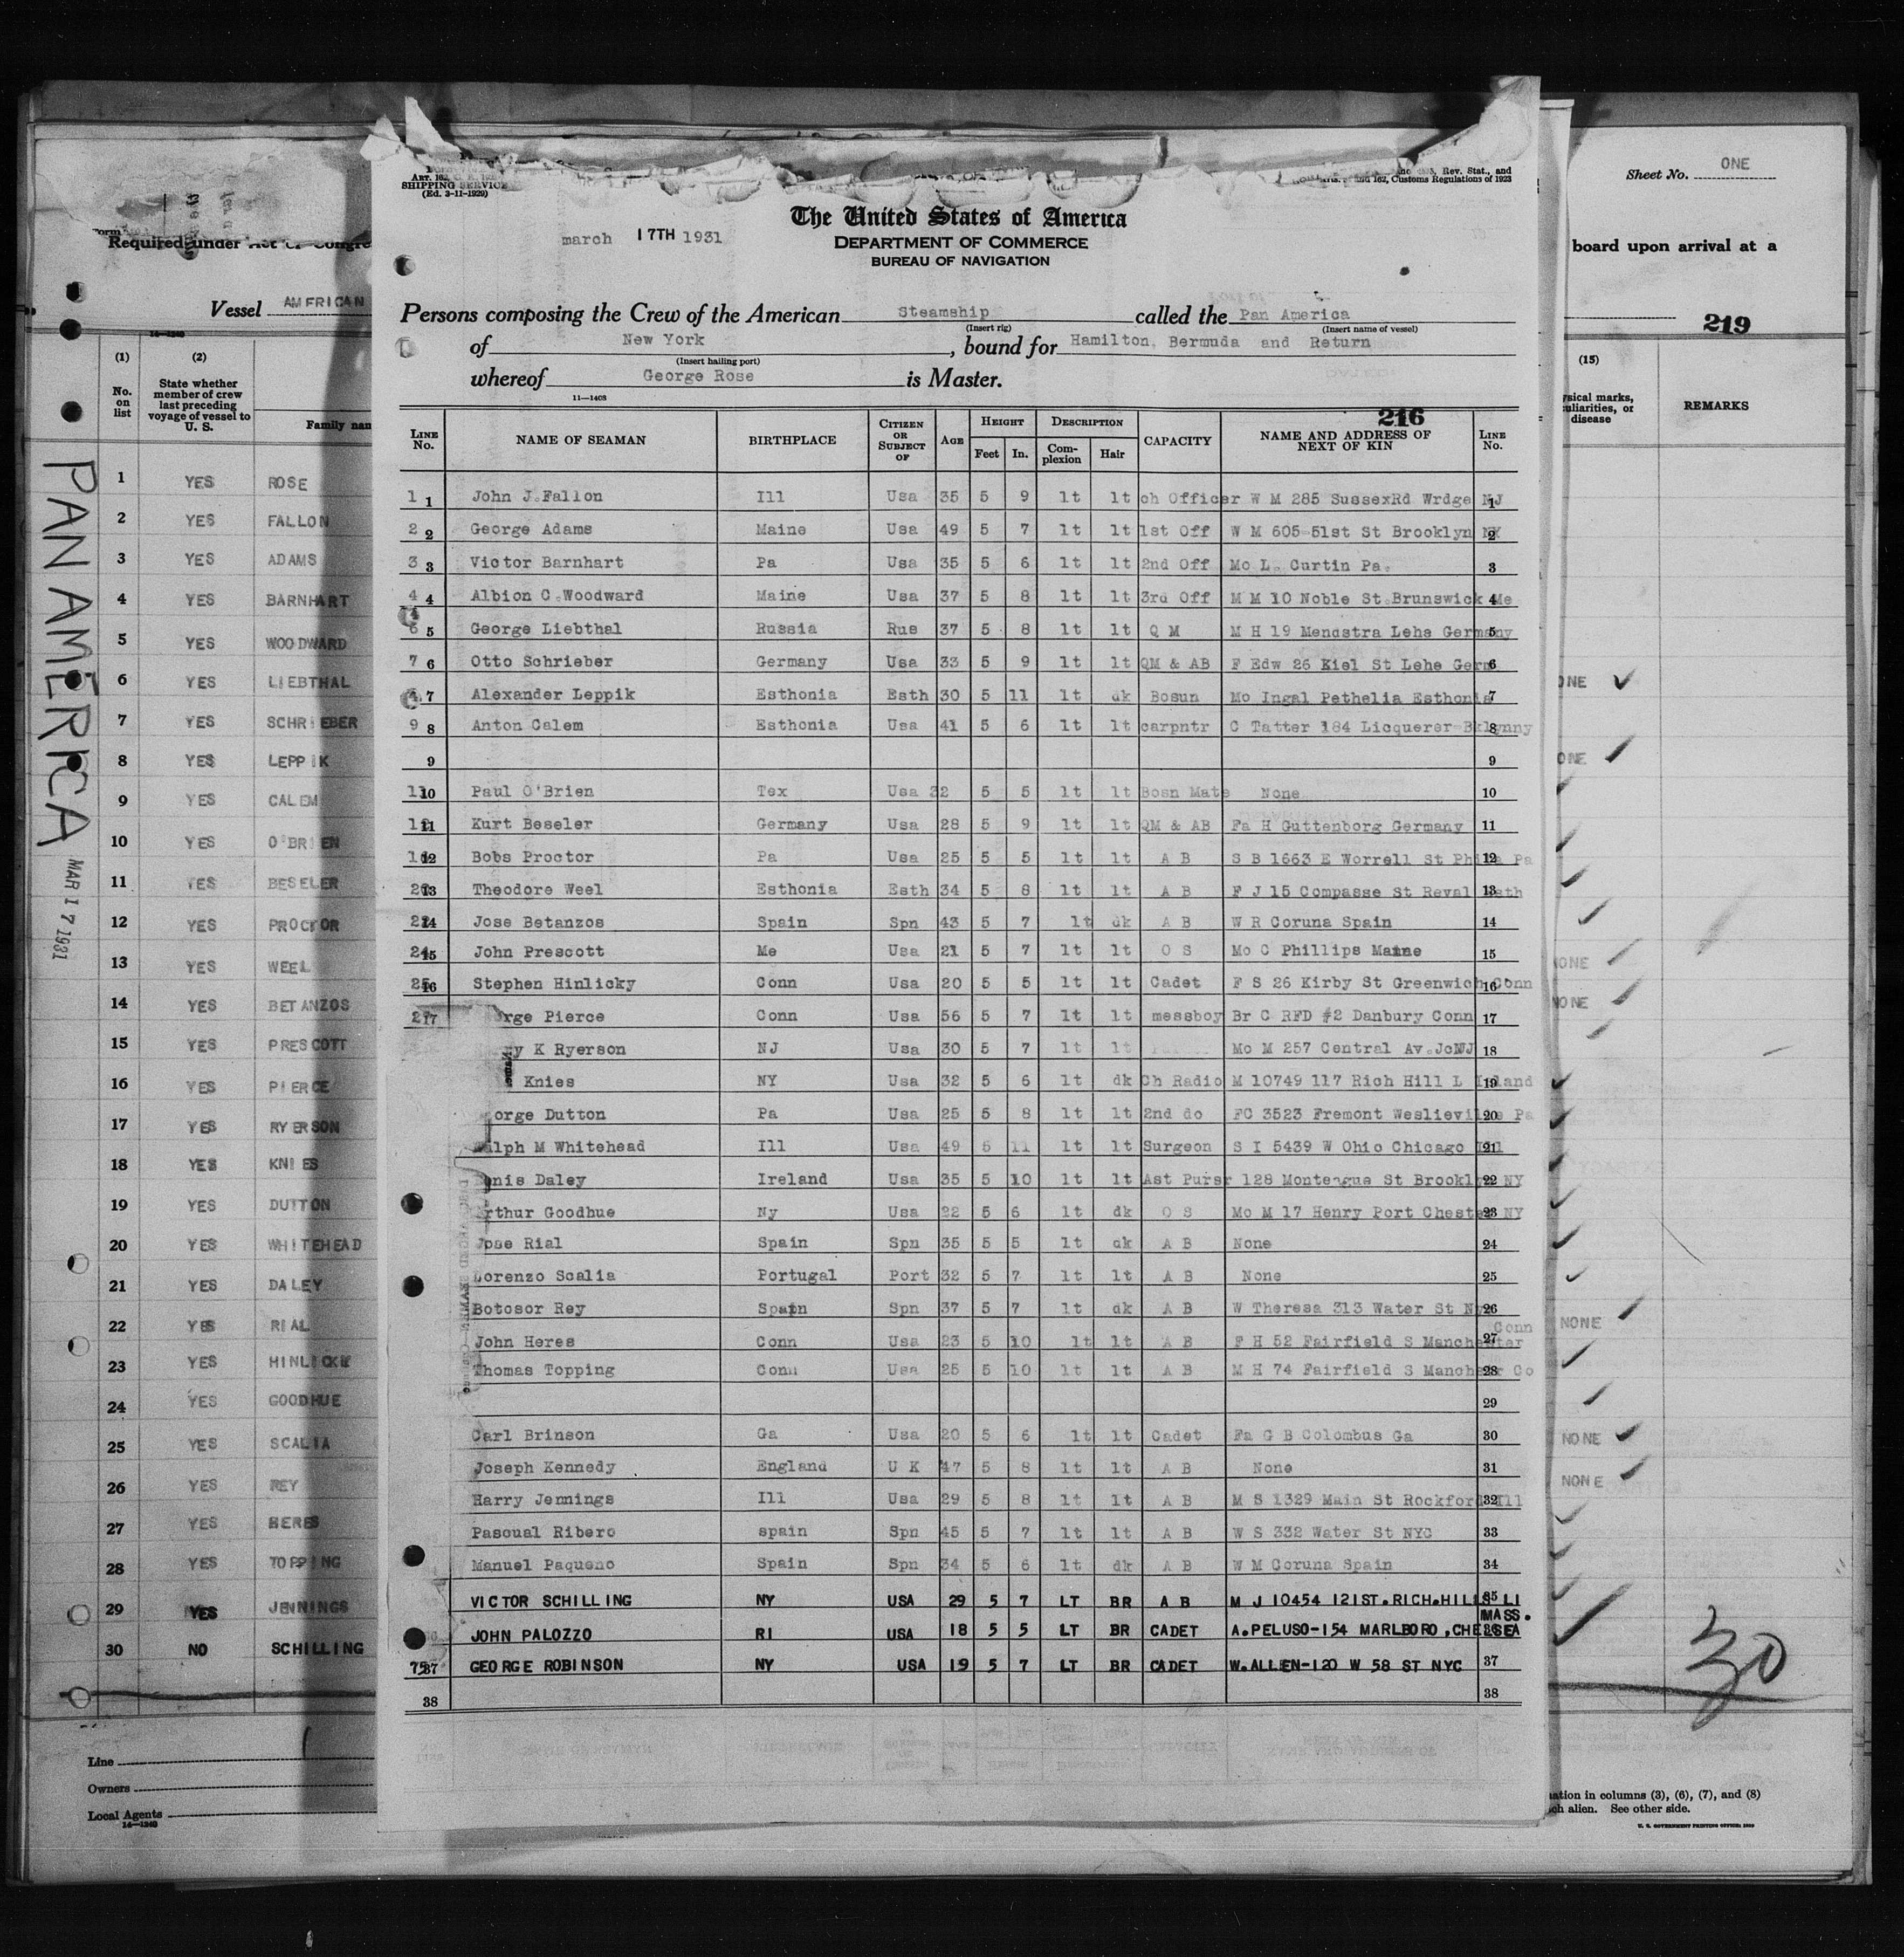 ART. 162
SHIPPING SERVICE
(Ed. 3-11-1929)
Rev. Stat., and
162, Customs Regulations of 1923
The United States of America
DEPARTMENT OF COMMERCE
BUREAU OF NAVIGATION
march 17TH 1931
Persons composing the Crew of the American Steamship called the Pan America
(Insert rig) (Insert name of vessel)
of New York, bound for Hamilton, Bermuda and Return
(Insert hailing port)
whereof George Rose is Master.
11—1408
216
LINE No. NAME OF SEAMAN BIRTHPLACE CITIZEN OR SUBJECT OF AGE HEIGHT Feet In. DESCRIPTION Complexion Hair CAPACITY NAME AND ADDRESS OF NEXT OF KIN LINE No.
1 1 John J.Fallon Ill Usa 35 5 9 lt lt ch Officer W M 285 SussexRd Wrdge NJ 1
2 2 George Adams Maine Usa 49 5 7 lt lt 1st Off W M 605-51st St Brooklyn NY 2
3 3 Victor Barnhart Pa Usa 35 5 6 lt lt 2nd Off Mo L. Curtin Pa. 3
4 4 Albion C.Woodward Maine Usa 37 5 8 lt lt 3rd Off M M 10 Noble St.Brunswick Me 4
6 5 George Liebthal Russia Rus 37 5 8 lt lt Q M M H 19 Mendstra Lehe Germany 5
7 6 Otto Schrieber Germany Usa 33 5 9 lt lt QM & AB F Edw 26 Kiel St Lehe Germ 6
7 Alexander Leppik Esthonia Esth 30 5 11 lt dk Bosun Mo Ingal Pethelia Esthonia 7
9 8 Anton Calem Esthonia Usa 41 5 6 lt lt carpntr C Tatter 184 Licquerer-Bklynny 8
9 9
10 Paul O'Brien Tex Usa 32 5 5 lt lt Bosn Mate None 10
11 Kurt Beseler Germany Usa 28 5 9 lt lt QM & AB Fa H Guttenborg Germany 11
12 Bobs Proctor Pa Usa 25 5 5 lt lt A B S B 1663 E Worrell St Phila Pa 12
13 Theodore Weel Esthonia Esth 34 5 8 lt lt A B F J 15 Compasse St Reval Esth 13
14 Jose Betanzos Spain Spn 43 5 7 lt dk A B W R Coruna Spain 14
15 John Prescott Me Usa 21 5 7 lt lt O S Mo C Phillips Maine 15
16 Stephen Hinlicky Conn Usa 20 5 5 lt lt Cadet F S 26 Kirby St Greenwich Conn 16
17 rge Pierce Conn Usa 56 5 7 lt lt messboy Br C RFD #2 Danbury Conn 17
y K Ryerson NJ Usa 30 5 7 lt lt Mo M 257 Central Av.JcNJ 18
Knies NY Usa 32 5 6 lt dk Ch Radio M 10749 117 Rich Hill L Island 19
orge Dutton Pa Usa 25 5 8 lt lt 2nd do FC 3523 Fremont Weslieville Pa 20
alph M Whitehead Ill Usa 49 5 11 lt lt Surgeon S I 5439 W Ohio Chicago Ill 21
enis Daley Ireland Usa 35 5 10 lt lt Ast Pursr 128 Monteague St Brooklyn NY 22
Arthur Goodhue Ny Usa 22 5 6 lt dk O S Mo M 17 Henry Port Chester NY 23
Jose Rial Spain Spn 35 5 5 lt dk A B None 24
Lorenzo Scalia Portugal Port 32 5 7 lt lt A B None 25
Botosor Rey Spain Spn 37 5 7 lt dk A B W Theresa 313 Water St Nyc 26
John Heres Conn Usa 23 5 10 lt lt A B F H 52 Fairfield S Manchester Conn 27
Thomas Topping Conn Usa 25 5 10 lt lt A B M H 74 Fairfield S Manchesr Co 28
29
Carl Brinson Ga Usa 20 5 6 lt lt Cadet Fa G B Colombus Ga 30
Joseph Kennedy England U K 47 5 8 lt lt A B None 31
Harry Jennings Ill Usa 29 5 8 lt lt A B M S 1329 Main St Rockford Ill 32
Pascual Ribero spain Spn 45 5 7 lt lt A B W S 332 Water St NYC 33
Manuel Paqueno Spain Spn 34 5 6 lt dk A B W M Coruna Spain 34
VICTOR SCHILLING NY USA 29 5 7 LT BR A B M J 10454 121ST.RICH.HILLS LI 35
JOHN PALOZZO RI USA 18 5 5 LT BR CADET A.PELUSO-154 MARLBORO,CHELSEA MASS. 36
37 GEORGE ROBINSON NY USA 19 5 7 LT BR CADET W.ALLEN-120 W 58 ST NYC 37
38 38
Required under Act of Congre
Vessel AMERICAN
14—1240
(1) No. on list
(2) State whether member of crew last preceding voyage of vessel to U. S.
Family nam
1 YES ROSE
2 YES FALLON
3 YES ADAMS
4 YES BARNHART
5 YES WOODWARD
6 YES LIEBTHAL
7 YES SCHRIEBER
8 YES LEPPIK
9 YES CALEM
10 YES O'BRIEN
11 YES BESELER
12 YES PROCTOR
13 YES WEEL
14 YES BETANZOS
15 YES PRESCOTT
16 YES PIERCE
17 YES RYERSON
18 YES KNIES
19 YES DUTTON
20 YES WHITEHEAD
21 YES DALEY
22 YES RIAL
23 YES HINLICKY
24 YES GOODHUE
25 YES SCALIA
26 YES REY
27 YES HERES
28 YES TOPPING
29 YES JENNINGS
30 NO SCHILLING
Line
Owners
Local Agents
14—1240
PAN AMERICA
MAR 17 1931
Sheet No. ONE
board upon arrival at a
219
(15)
ysical marks, uliarities, or disease
REMARKS
ONE
ONE
ONE
NONE
NONE
NONE
NONE
30
ation in columns (3), (6), (7), and (8)
ch alien. See other side.
U. S. GOVERNMENT PRINTING OFFICE